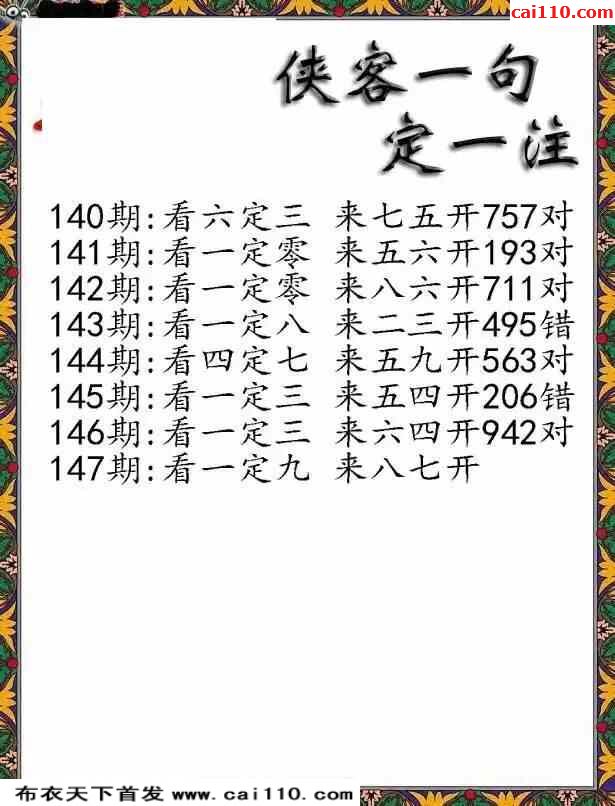 cai110.com
侠客一句
定一注
140期:看六定三 来七五开757对
141期:看一定零 来五六开193对
142期:看一定零 来八六开711对
143期:看一定八 来二三开495错
144期:看四定七 来五九开563对
145期:看一定三 来五四开206错
146期:看一定三 来六四开942对
147期:看一定九 来八七开
布衣天下首发 www.cai110.com